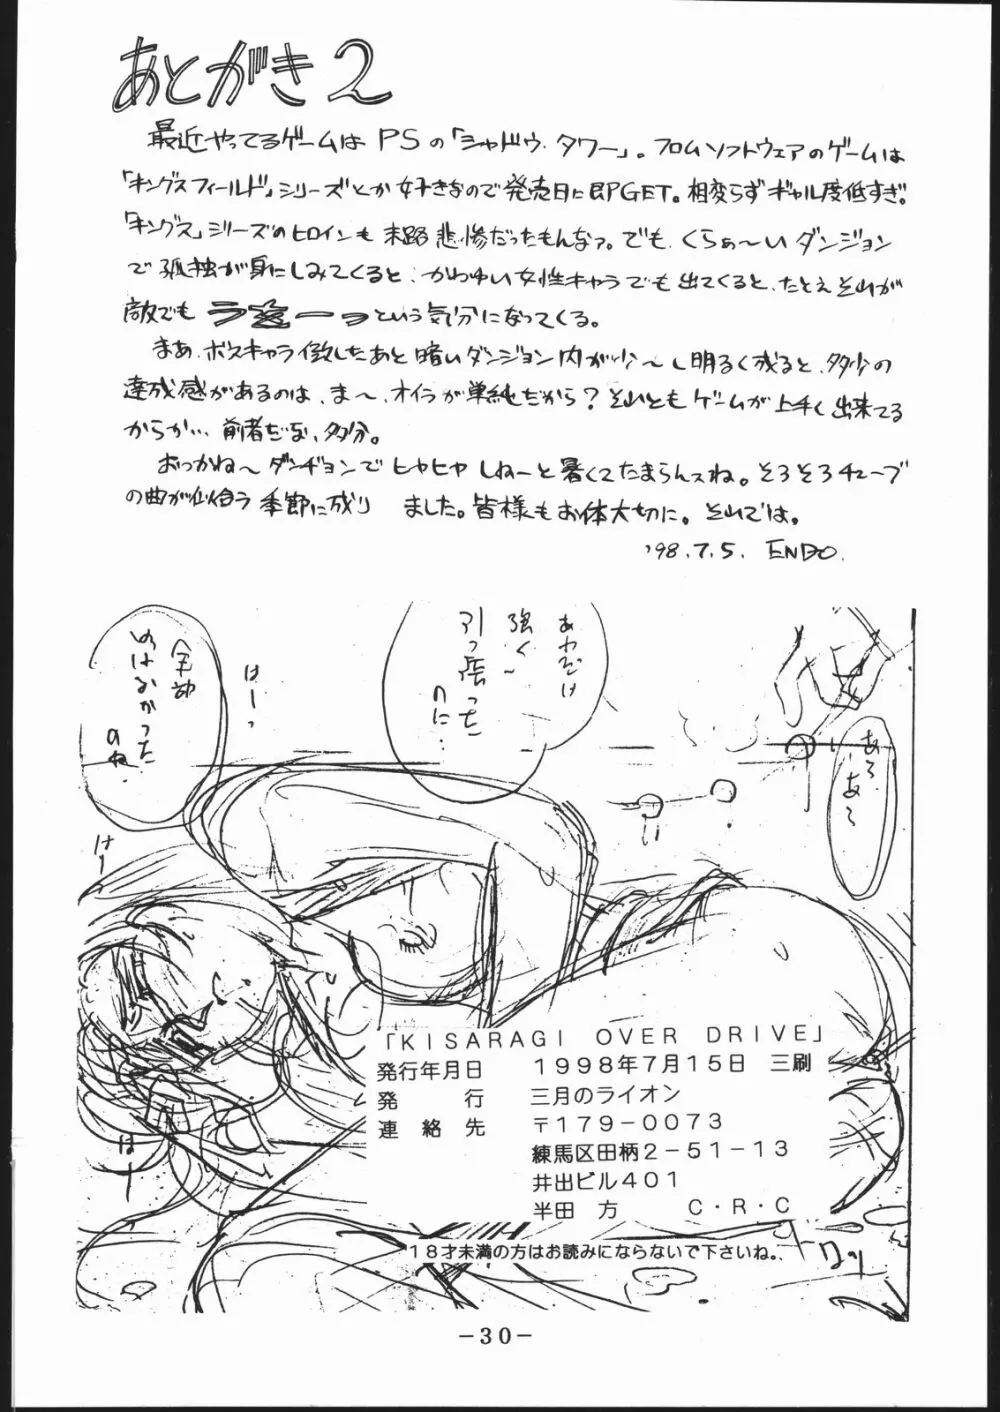 あとがき2
最近やってるゲームは PSの「シャドウ・タワー」。フロムソフトウェアのゲームは
「キングスフィールド」シリーズとか好きなので発売日に即GET。相変らずギャル度低すぎ。
「キングス」シリーズのヒロインも末路悲惨だったもんなァ。でも、くらぁ〜いダンジョン
で孤独が身にしみてくると、かわゆい女性キャラでも出てくると、たとえそれが
敵でも という気分になってくる。
まあ、ボスキャラ倒したあと暗いダンジョン内が少〜し明るく成ると、多少の
達成感があるのは、ま〜、オイラが単純だから?それともゲームが上手く出来てる
からか…、前者だな、多分。
おっかね〜ダンヂョンでヒヤヒヤしねーと暑くてたまらんスね。そろそろチューブ
の曲が似合う季節に成りました。皆様もお体大切に。それでは。
'98.7.5. ENDO.
あれだけ
強く〜
引っ張った
のに…
はーっ
全部
のね.
あら
あら
はーっ
はーっ
「KISARAGI OVER DRIVE」
発行年月日 1998年7月15日 三刷
発行 三月のライオン
連絡先 〒179-0073
練馬区田柄2-51-13
井出ビル401
半田 方 C・R・C
18才未満の方はお読みにならないで下さいね。
-30-